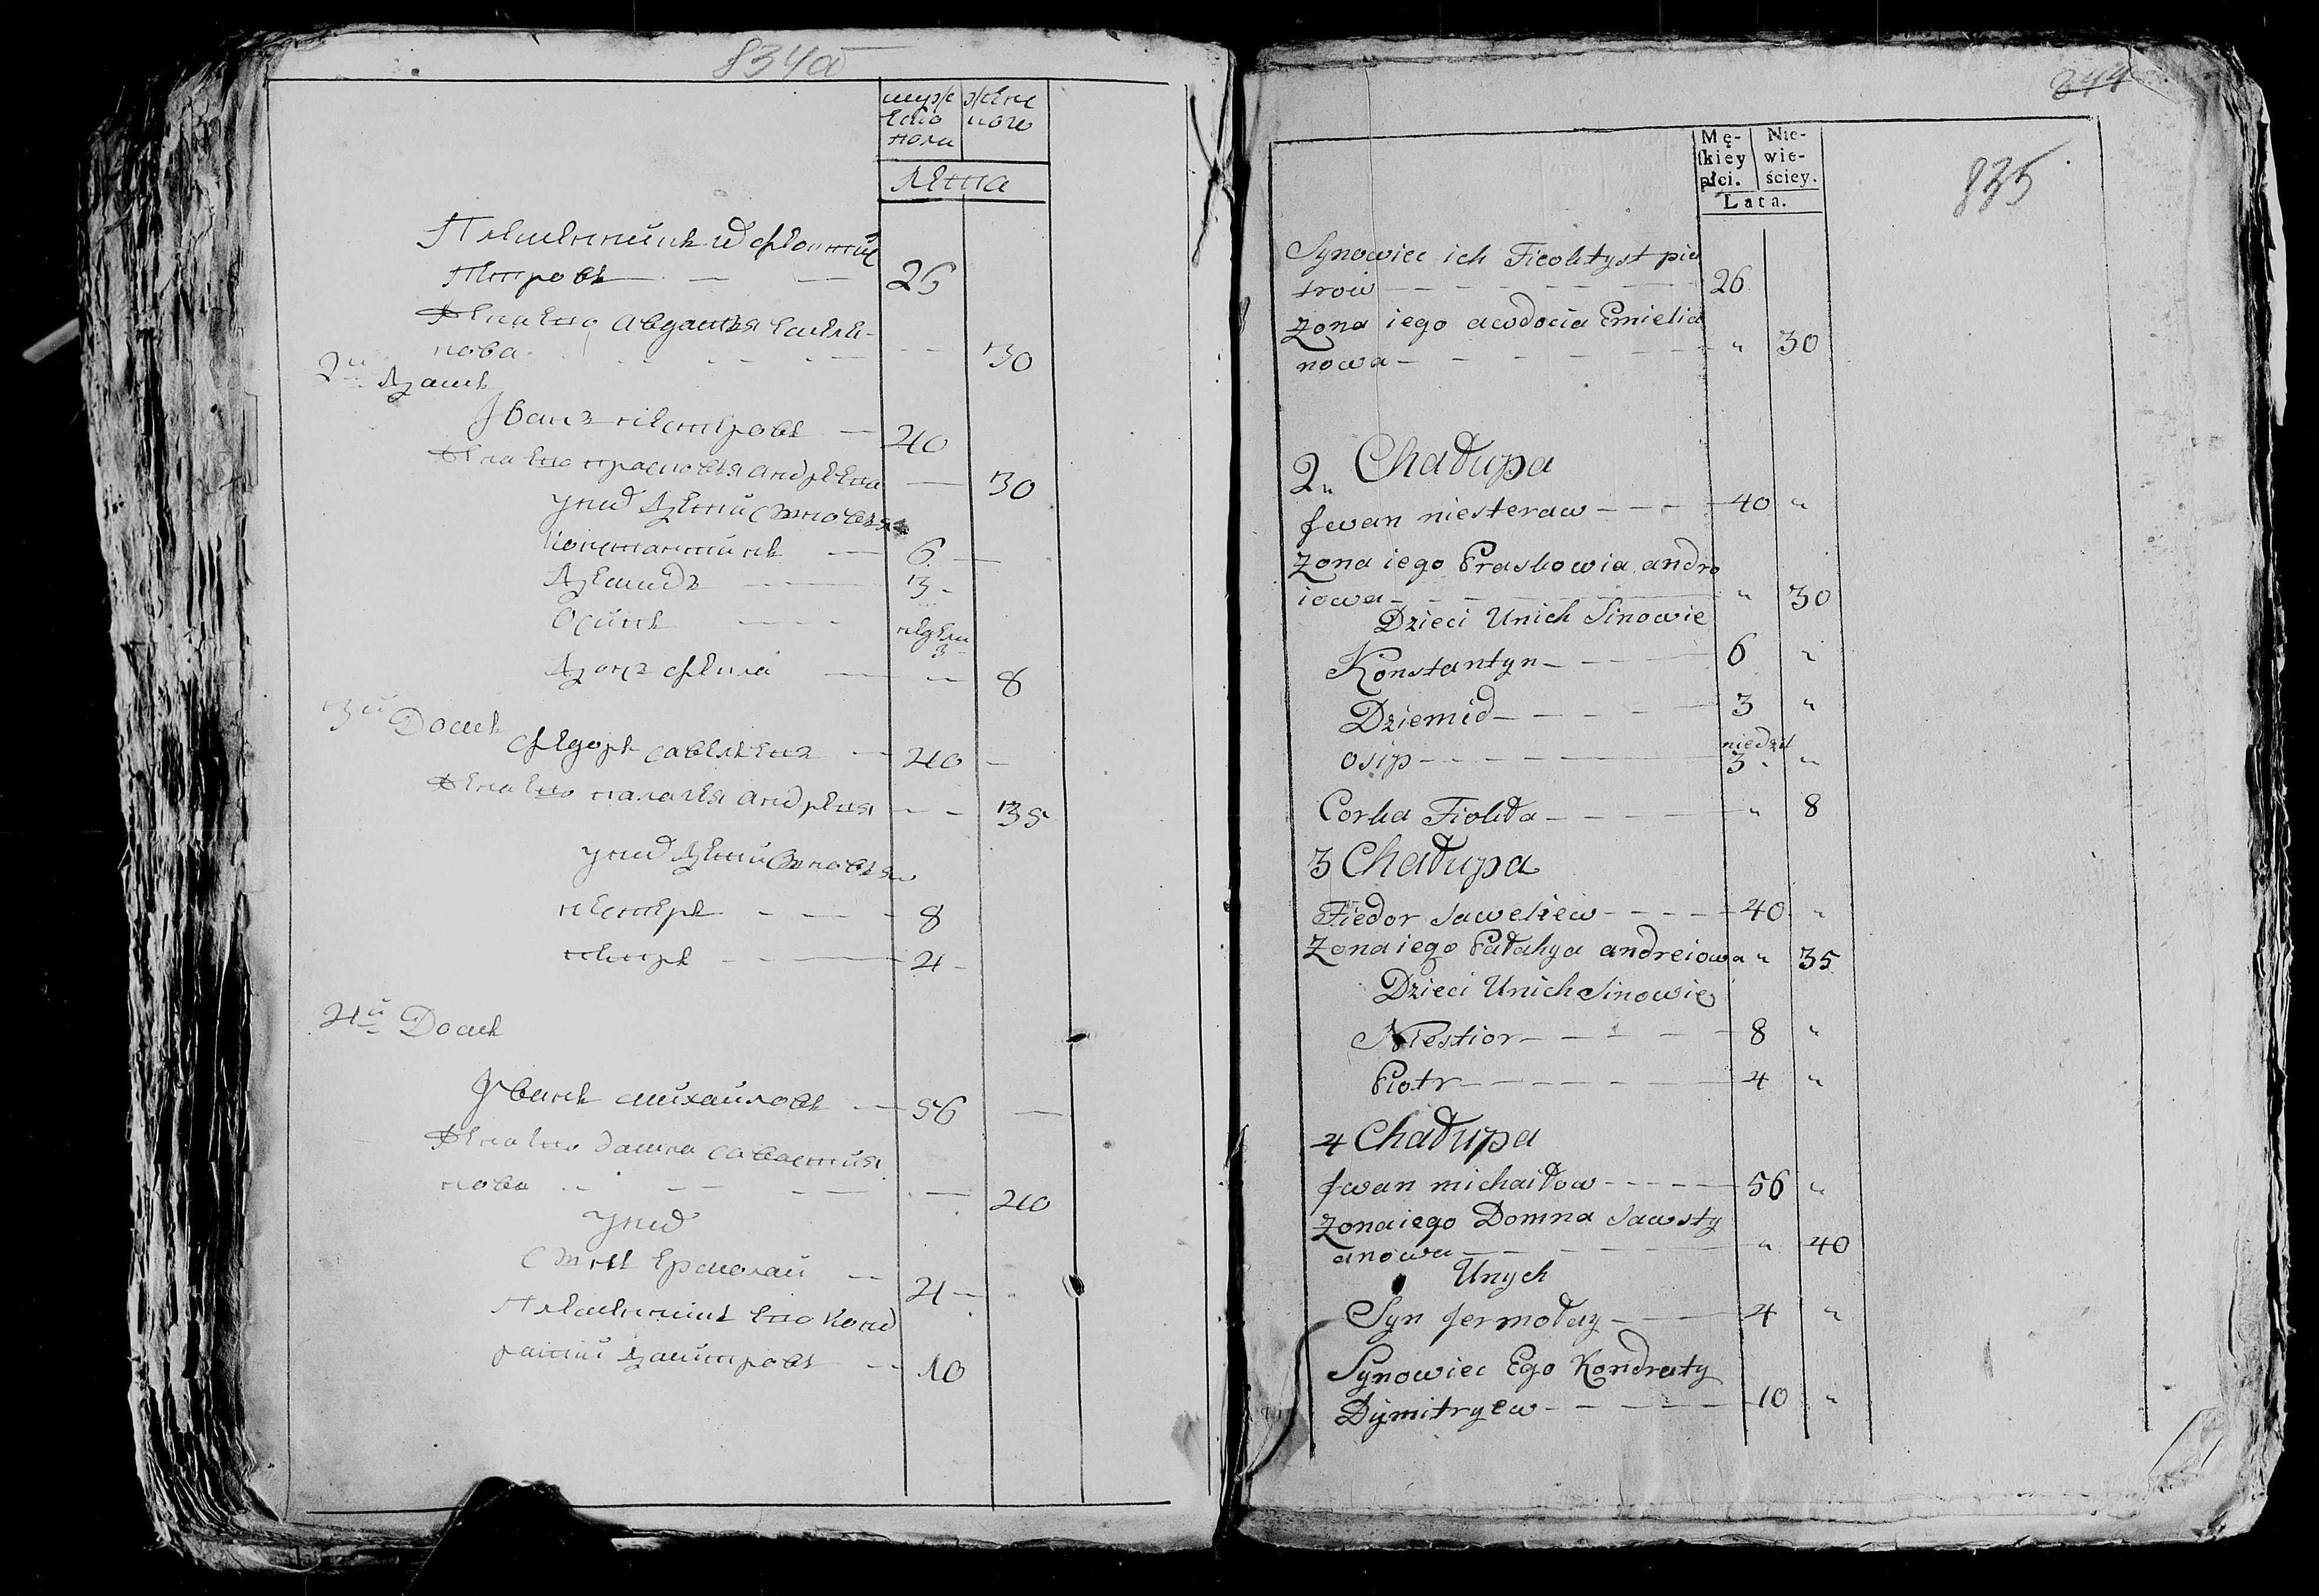 834а
муже
ска
пола
жен
ского
Лета
Племенникъ ихъ феоктистъ
Петровъ — — — 26
Жена ево авдотья Емелья-
нова — — — 30
2й Домъ
Иванъ нестеровъ — 40
Жена ево прасковья андреева — 30
у них дети сыновья
Константинъ — 6 —
Демидъ — 3 -
Осипъ — недели
3 -
Дочь фекла — — 8
3й Домъ
федоръ савельевъ — 40 —
Жена ево палагея андреева — — 35
у них дети сыновья
нестеръ — 8
петръ — 4 -
4й Домъ
Иванъ михаиловъ — 56 —
Жена ево домна савостья
нова — — — 40
у них
сынъ Ермолай — 4 —
Племянникъ Ево Конд
ратий дмитровъ — 10
844
835
Mę-
skiey
płci.
Nie-
wie-
ściey.
Lata.
Synowiec ich Fieoktyst pie
trow — — — 26
Zona iego awdocia Emielia
nowa — — — „ 30
2„ Chałupa
Jwan niesteraw — — — 40 „
Zona iego Praskowia andre
iowa — — — „ 30
Dzieci Unich Sinowie
Konstantyn — — — 6 „
Dziemid — — — 3 „
osip — — — niedzil
3 „ „
Corka Fiokła — — — „ 8
3 Chałupa
Fiedor saweliew — — — 40 „
Zona iego Pałahya andreiowa „ 35
Dzieci Unich Sinowie
Niestior — — — 8 „
Piotr — — — 4 „
4 Chałupa
Jwan michaiłow — — — 56 „
Zona iego Domna sawsty
anowa — — — „ 40
Unych
Syn Jermołay — — — 4 „
Synowiec Ego Kondraty
Dymitryew — — — 10 „